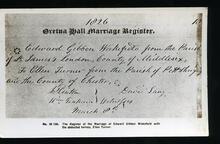 1826
Gretna Hall Marriage Register.
Edward Gibbon Wakefield from the Parish
of St James's London, County of Middlesex,
To Ellen Turner from the Parish of
and the County of Chester,
David Laing
March 8
The Register of the Marriage of Edward Gibbon Wakefield with
the abducted heiress, Ellen Turner